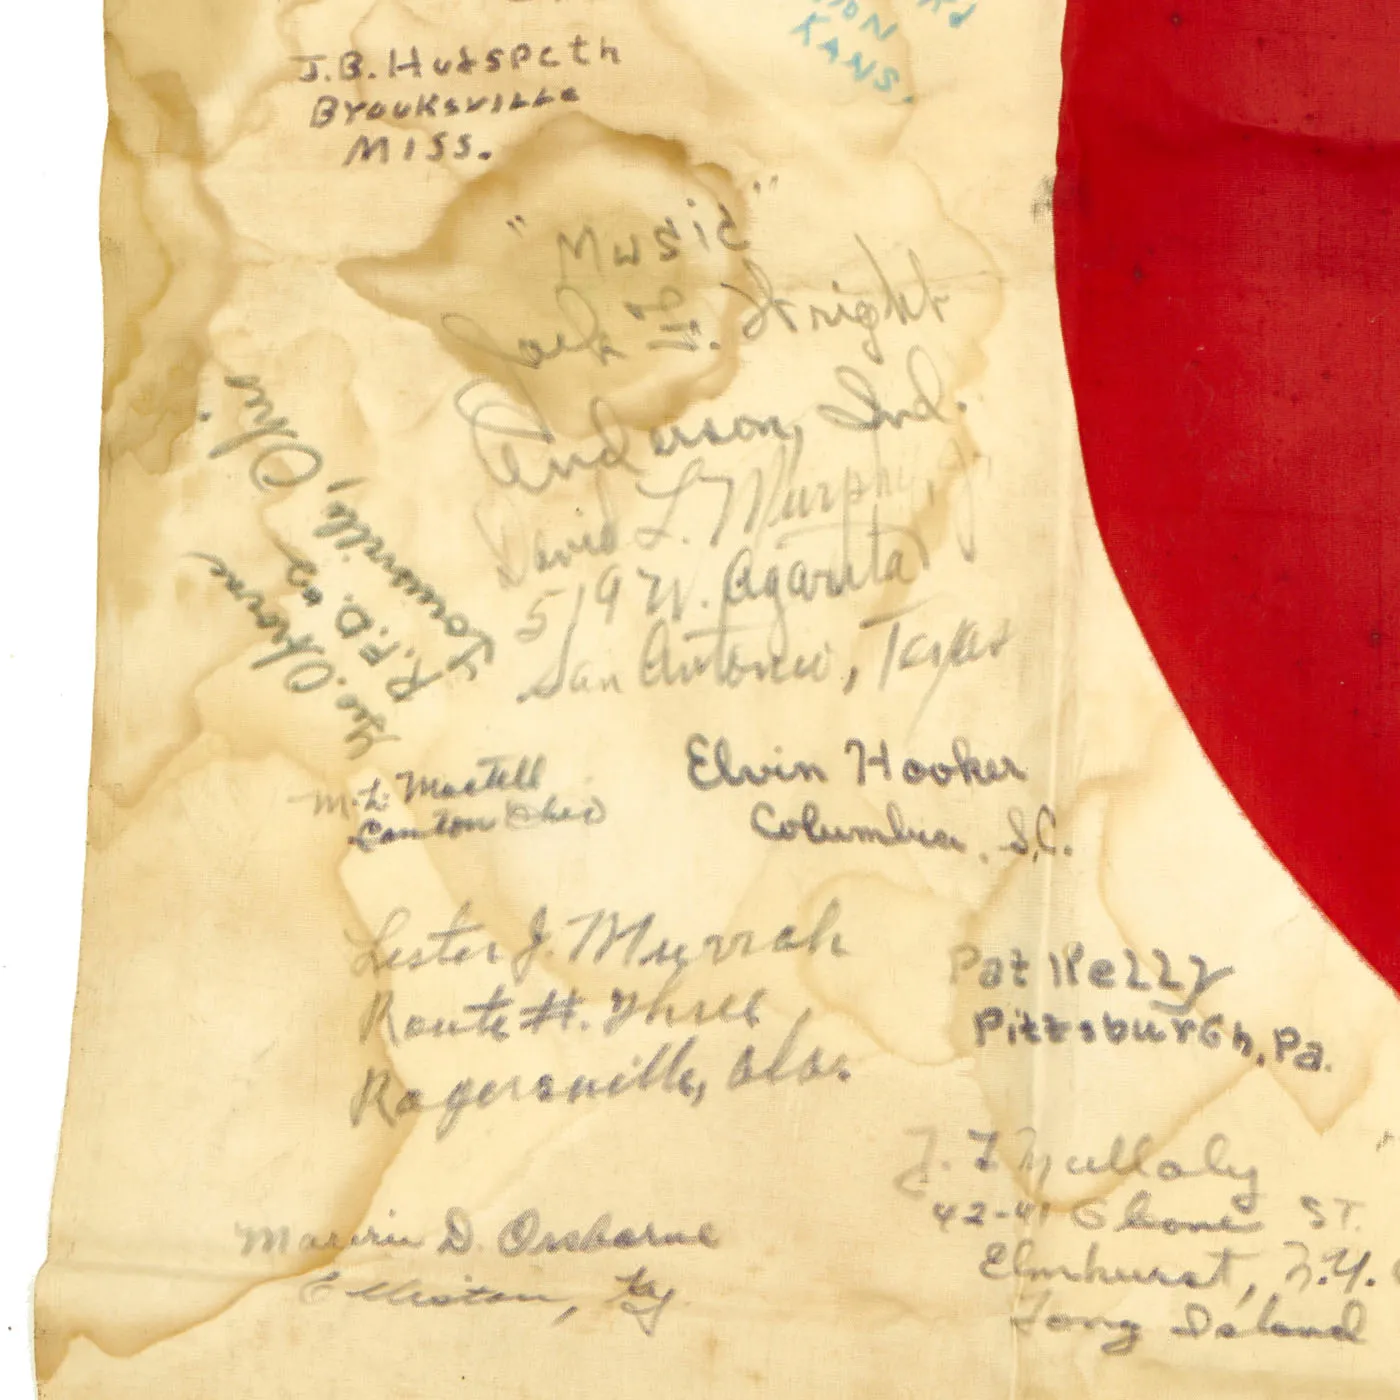 KANS.
J.B. Hudspeth
Brooksville
Miss.
"Music"
Jack L. Wright
Anderson, Ind.
David L. Murphy, Jr.
519 W. Agarita
San Antonio, Texas
Geo. Osborne
R.F.D. #2
Lewisville, Ohio
M. L. Mastell
Canton Ohio
Elvin Hooker
Columbia, S.C.
Lester J. Murrah
Route #. Three,
Rogersville, Ala.
Pat Kelly
Pittsburgh, Pa.
J. F. Mullaly
42-41 ST.
Elmhurst, N.Y.
Long Island
D. Osborne
Elliston, Ky.